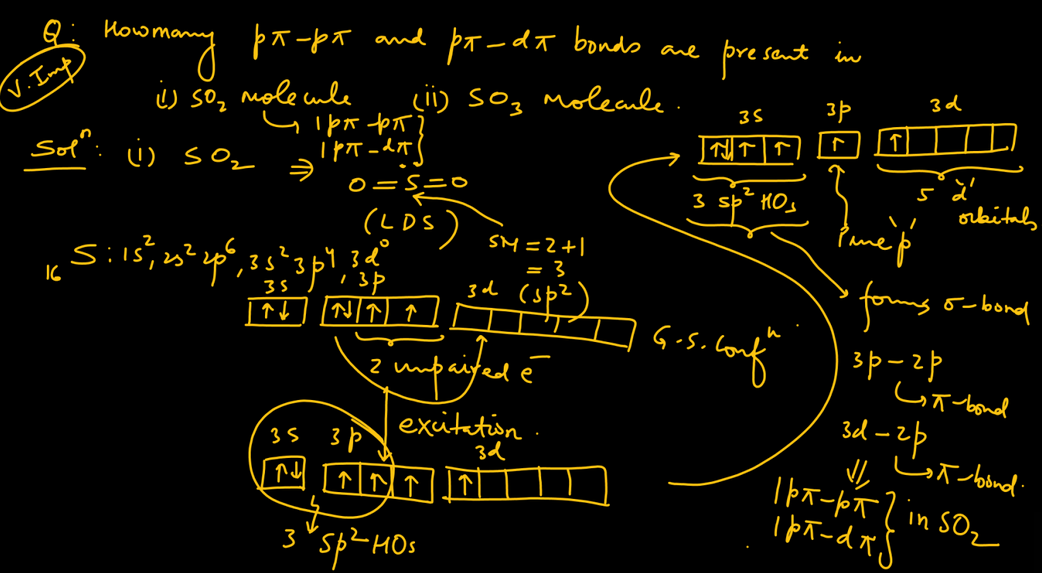 Q: How many pπ-pπ and pπ-dπ bonds are present in
V. Imp
(i) SO₂ molecule (ii) SO₃ Molecule.
1 pπ-pπ
1 pπ-dπ
Solⁿ: (i) SO₂ ⇒
O=S=O
(LDS)
SN = 2+1
= 3
(sp²)
₁₆S: 1s², 2s² 2p⁶, 3s² 3p⁴, 3d⁰
3s 3p 3d
G.S. Confⁿ
2 unpaired e⁻
excitation.
3s 3p 3d
3 sp² HOs
3s 3p 3d
3 sp² HOs
5 'd' orbitals
Pure 'p'
forms σ-bond
3p-2p
π-bond
3d-2p
π-bond.
1 pπ-pπ
1 pπ-dπ
in SO₂